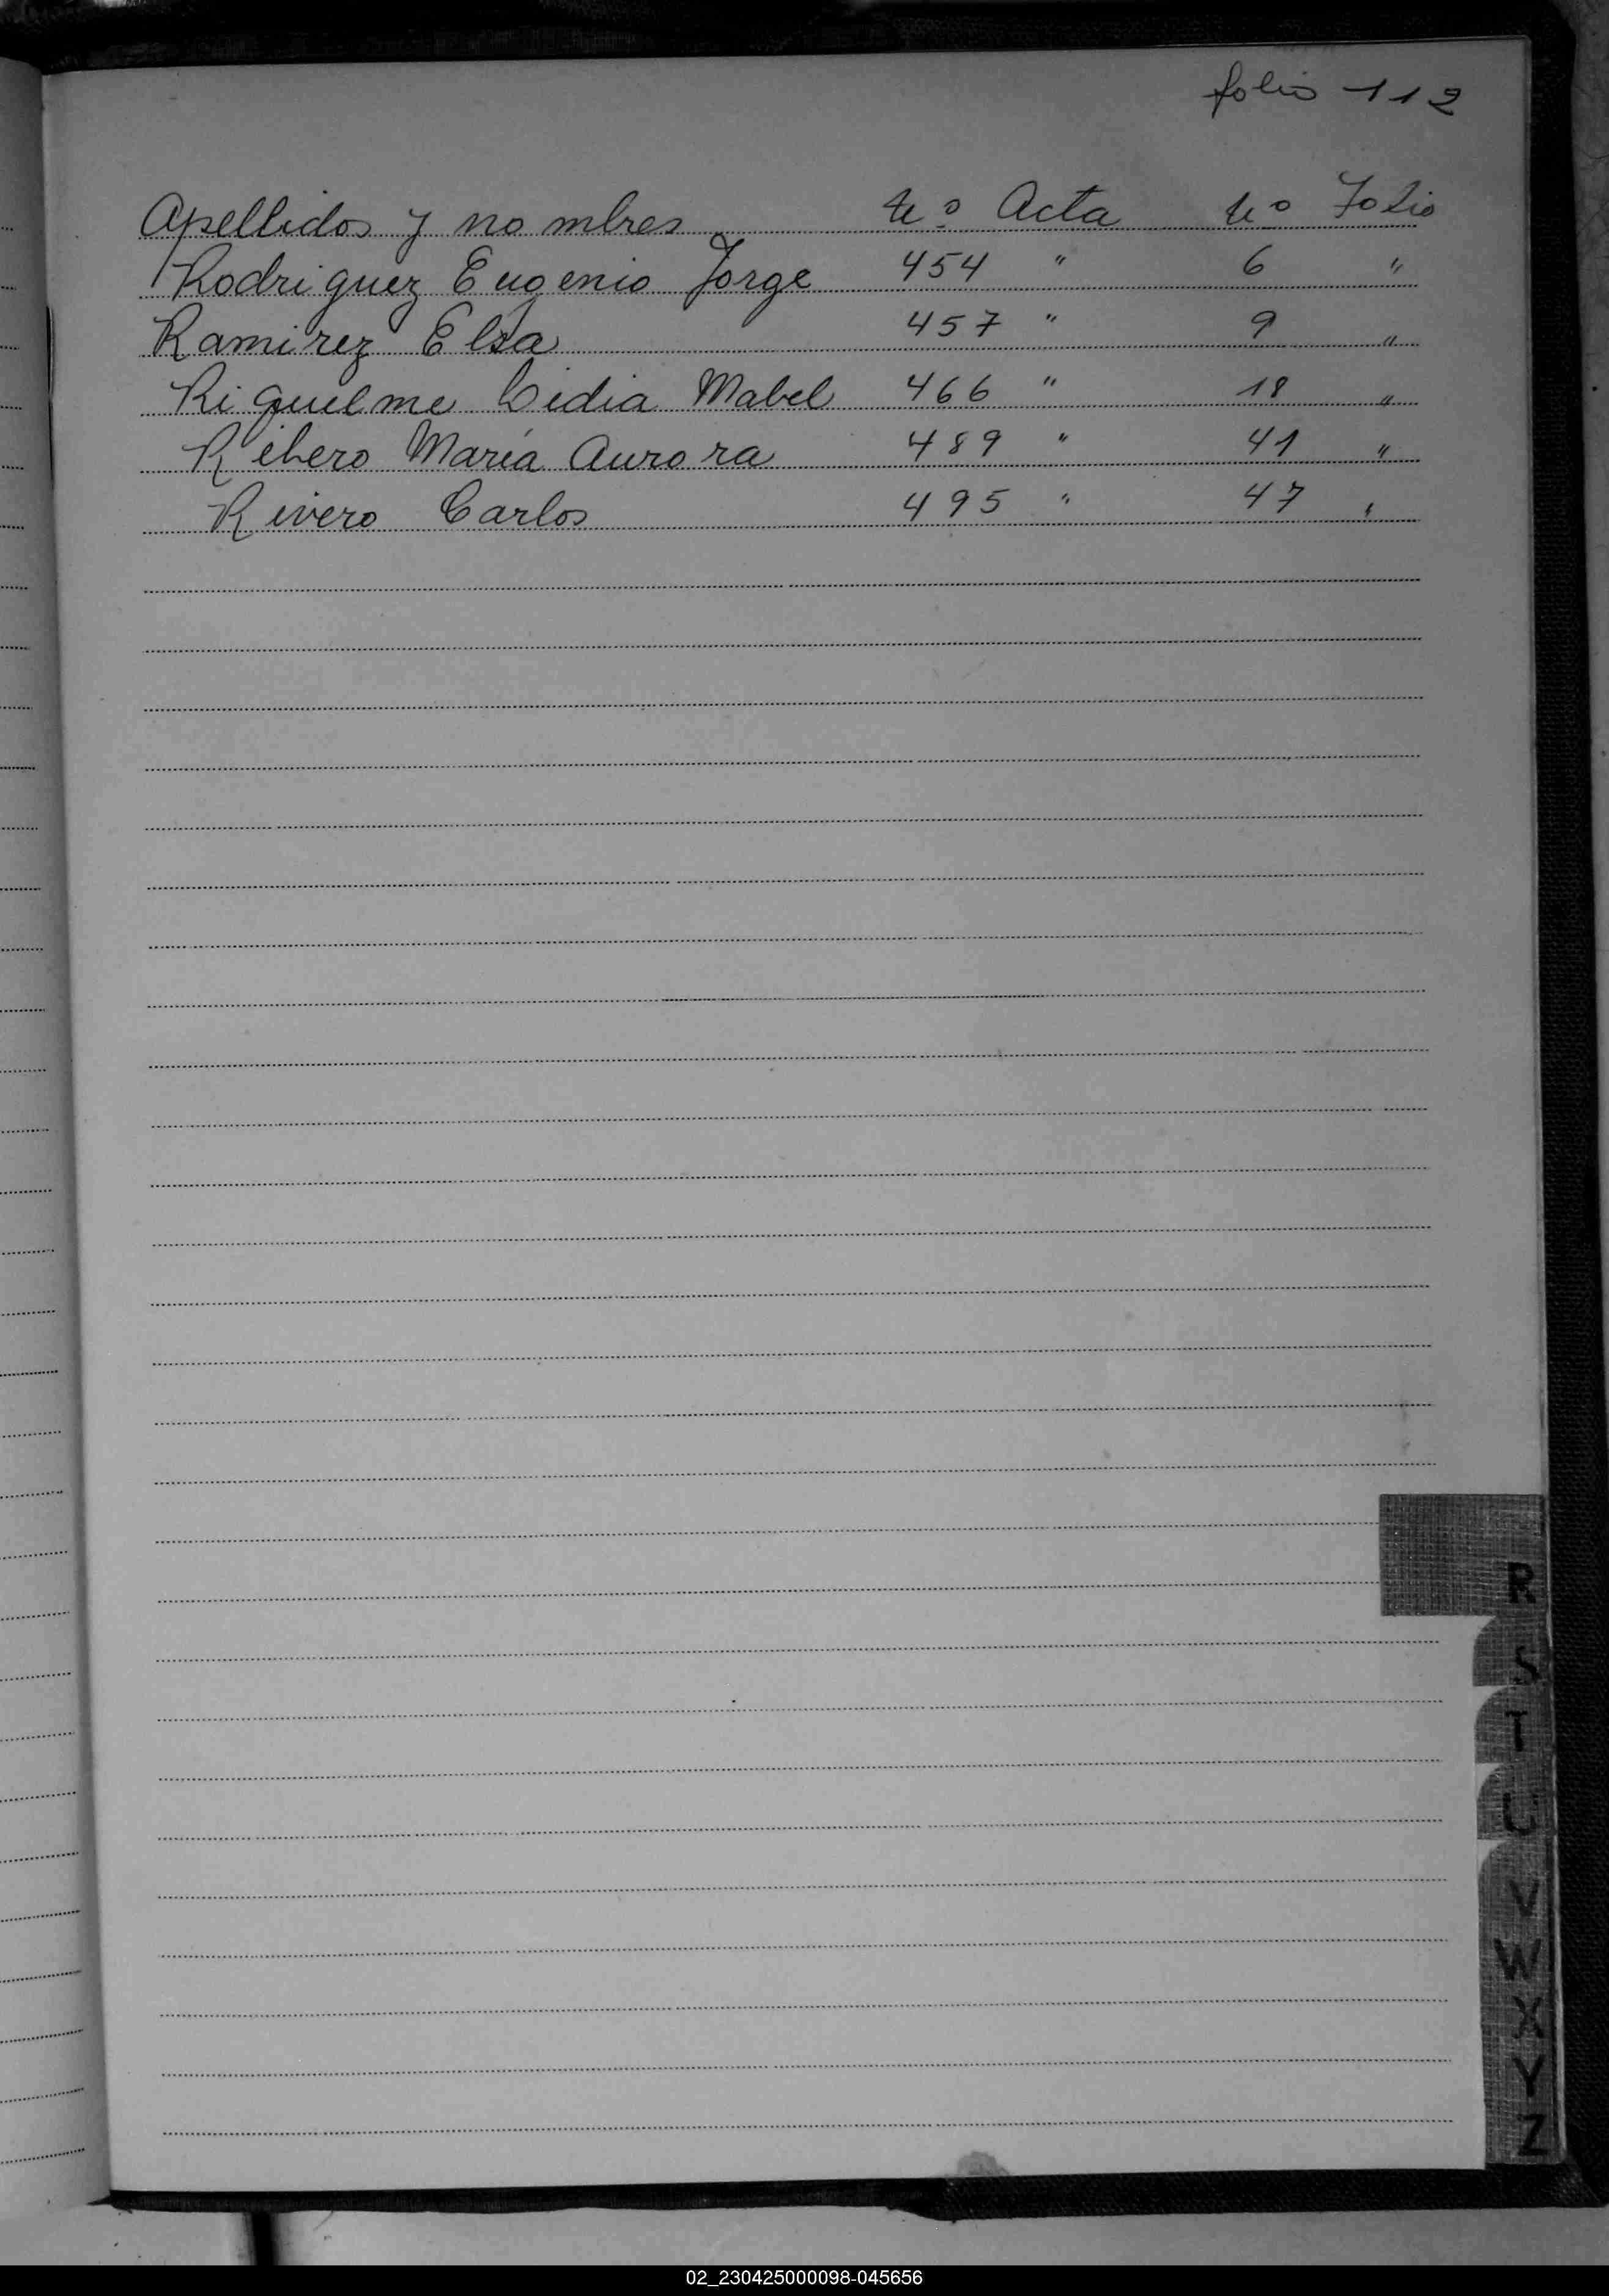 folio 112
Apellidos y nombres Nº Acta Nº Folio
Rodriguez Eugenio Jorge 454 " 6 "
Ramirez Elsa 457 " 9 "
Riquelme Lidia Mabel 466 " 18 "
Ribero María Aurora 489 " 41 "
Rivero Carlos 495 " 47 "
R
S
T
U
V
W
X
Y
Z
02_230425000098-045656